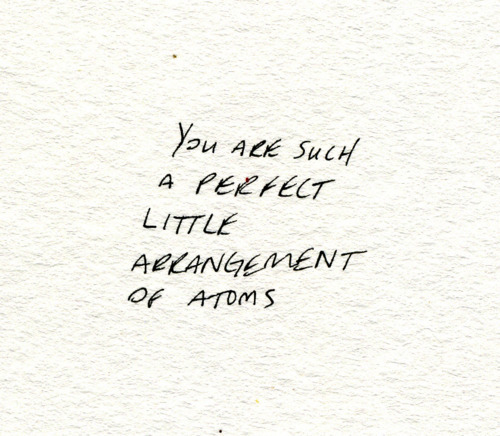 You ARE SUCH
A PERFECT
LITTLE
ARRANGEMENT
OF ATOMS